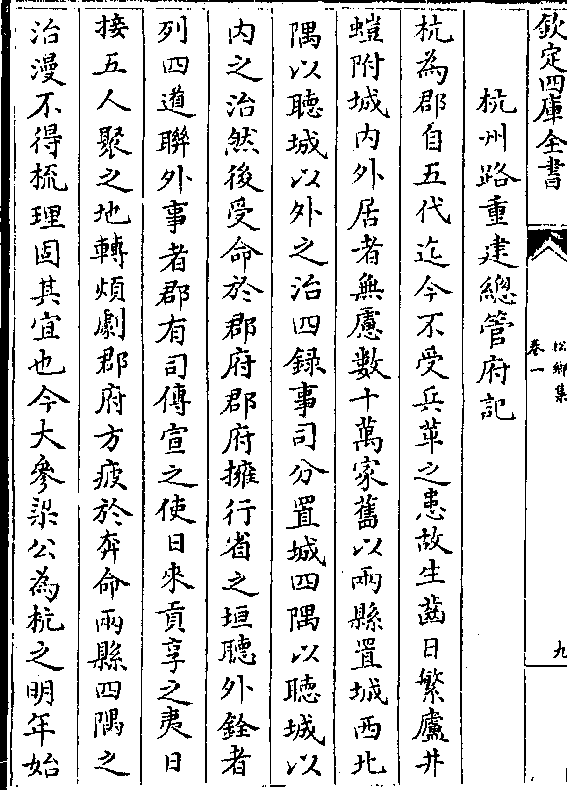 欽定四庫全書
松鄉集
卷一
九
杭州路重建總管府記
杭為郡自五代迄今不受兵革之患故生齒日繁廬井
螘附城内外居者無慮數十萬家舊以兩縣置城西北
隅以聽城以外之治四録事司分置城四隅以聽城以
内之治然後受命於郡府郡府擁行省之垣聽外銓者
列四道聯外事者郡有司傳宣之使日來貢享之夷日
接五人聚之地轉煩劇郡府方疲於奔命兩縣四隅之
治漫不得梳理固其宜也今大參梁公為杭之明年始